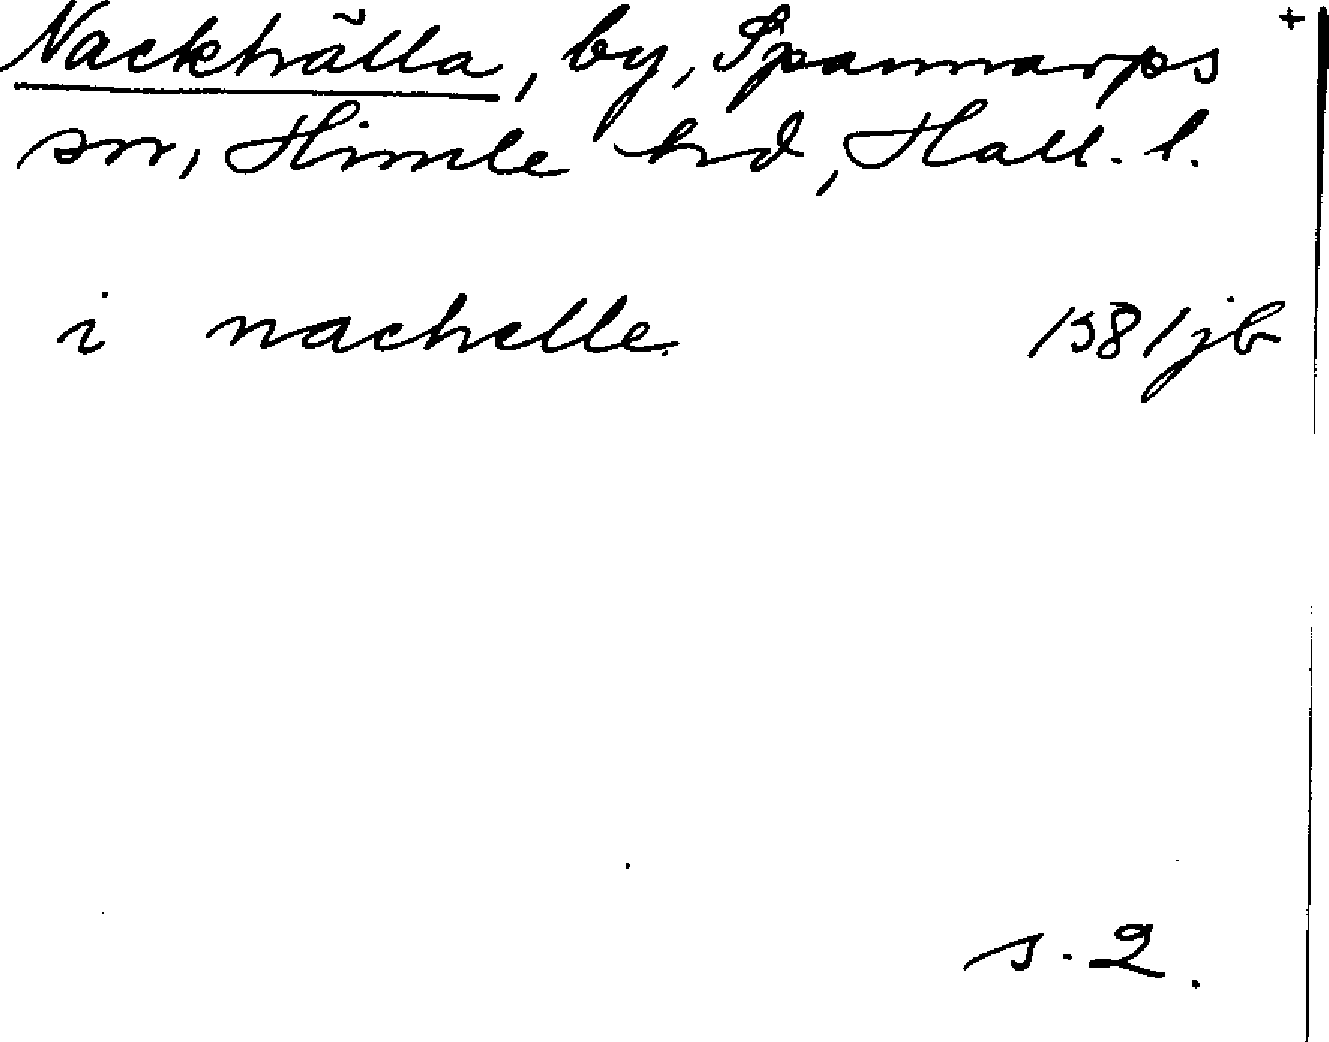 Nackhälla, by, Spannarps +
sn, Himle hd, Hall. l.
i nachelle 1581 jb
s. 2.